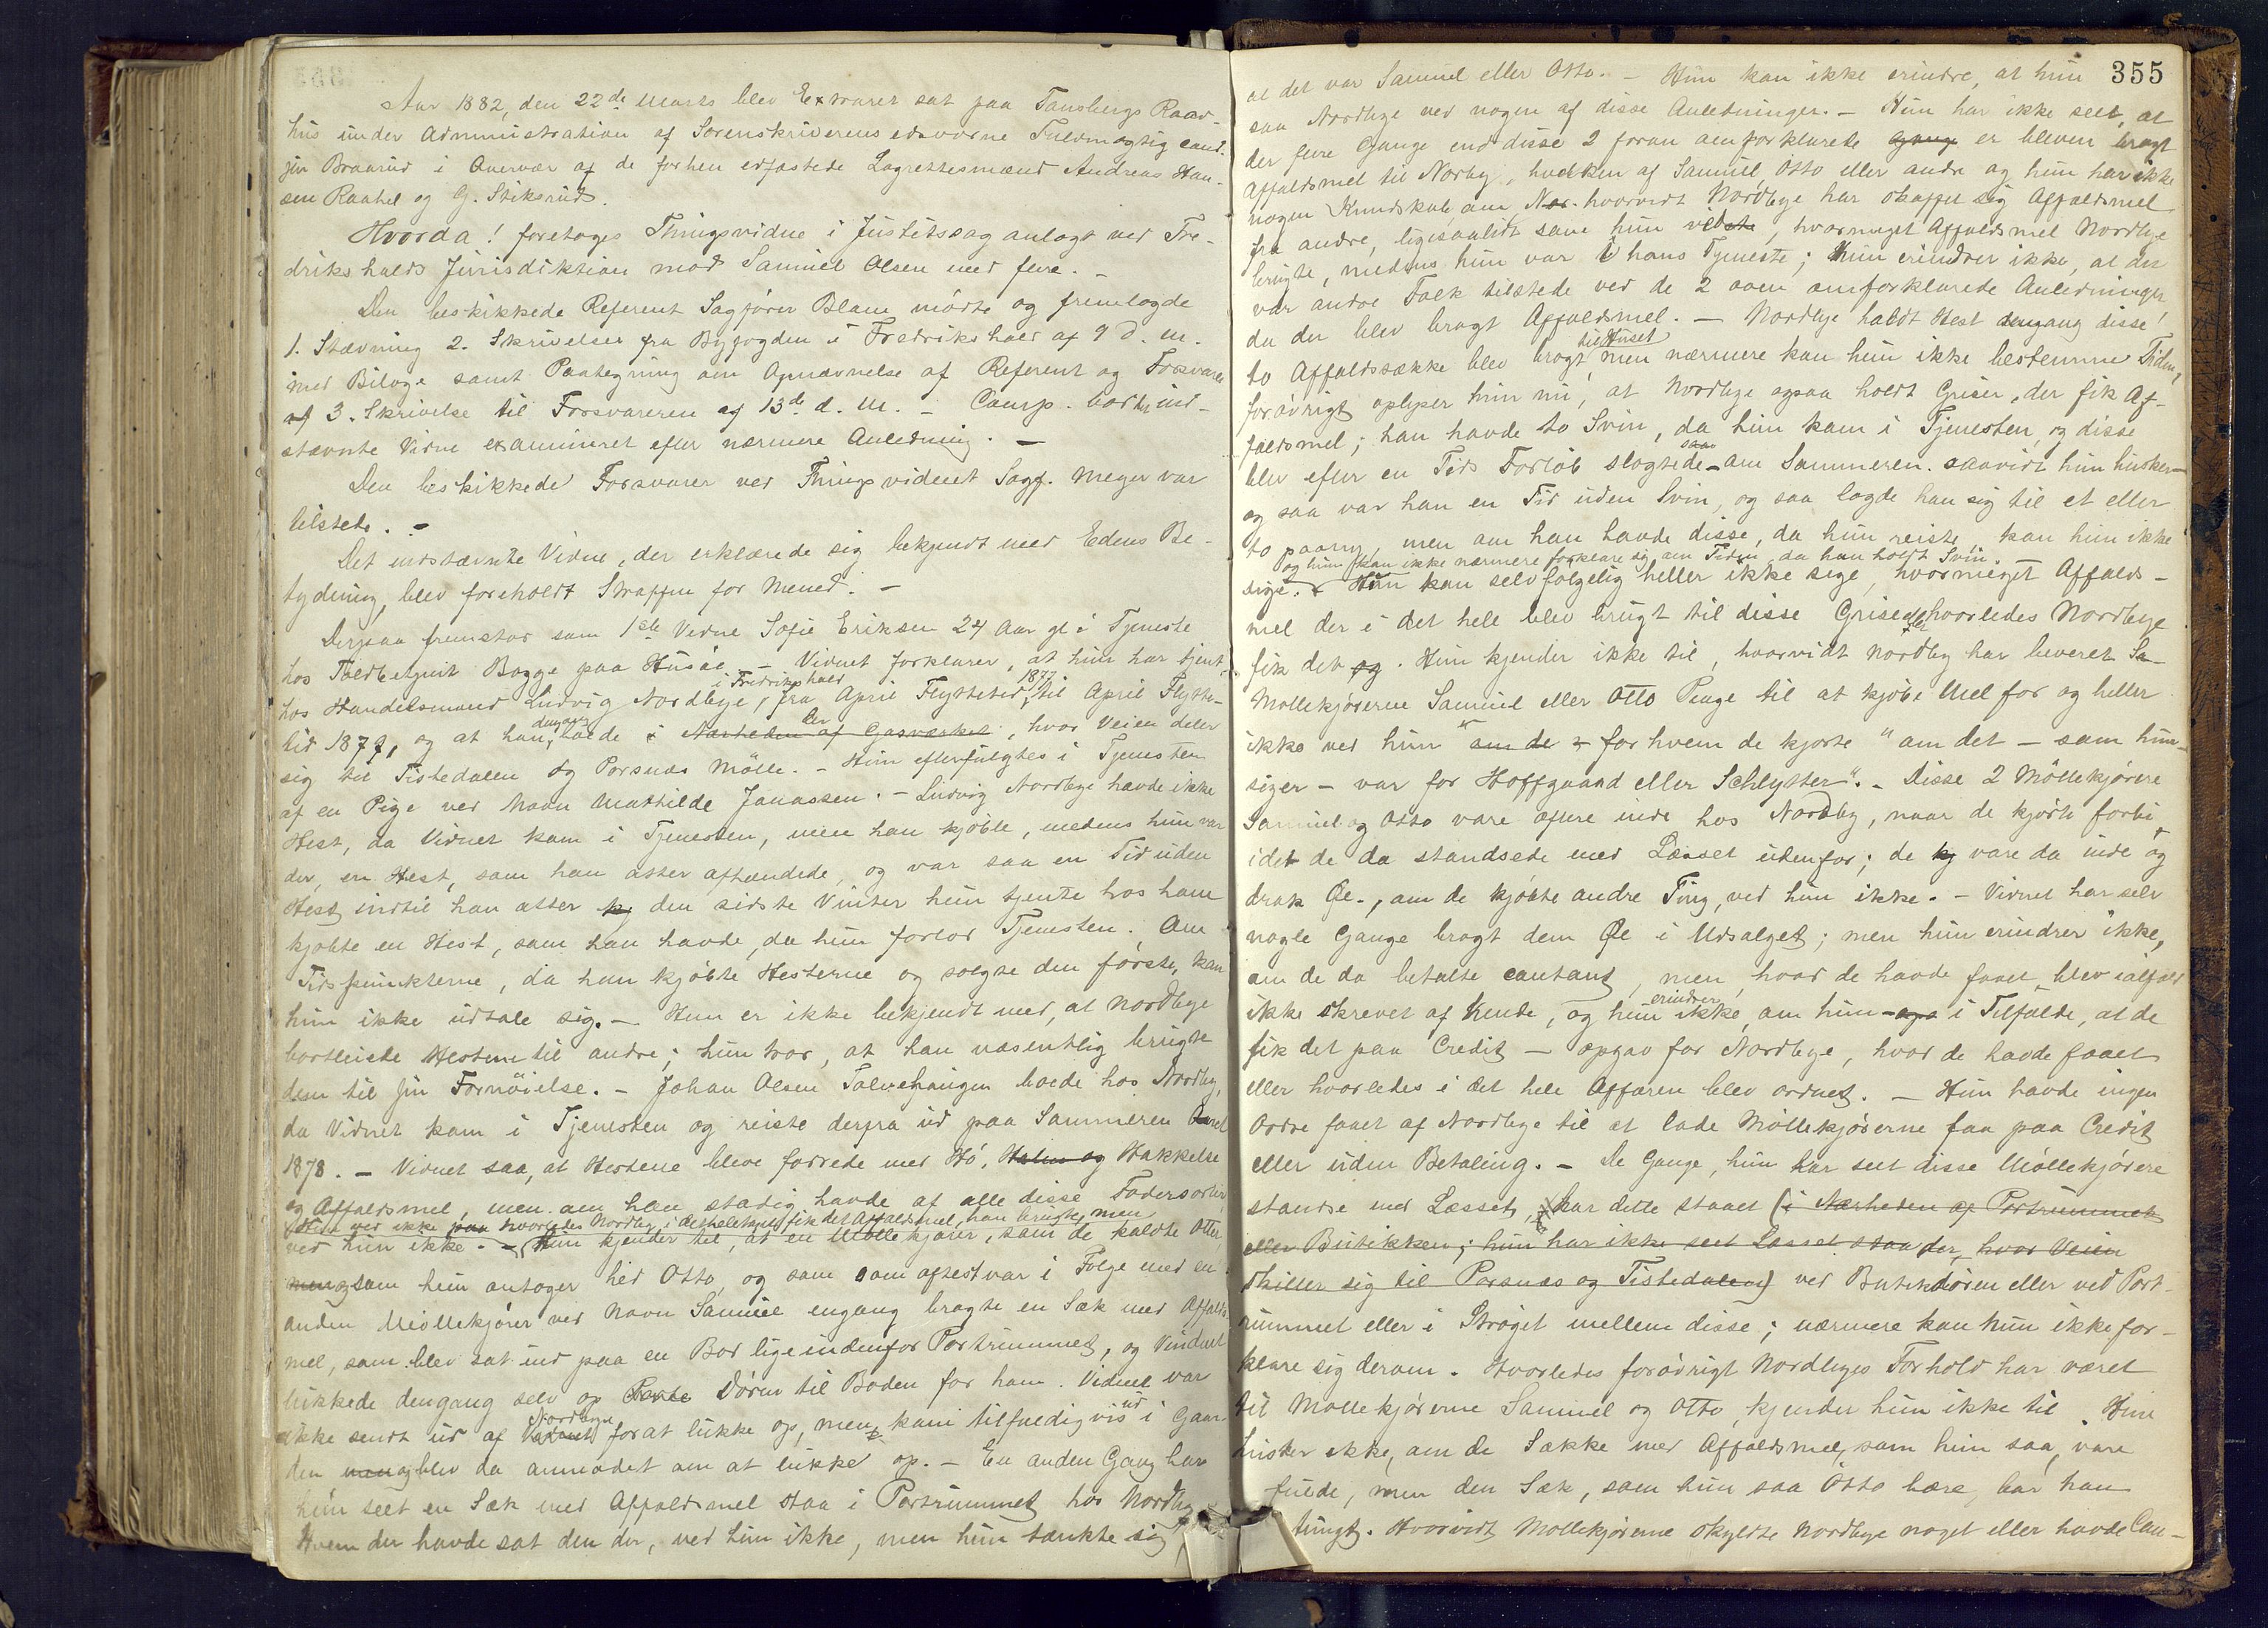 Aar 1882, den 22de Marts blev Extraret sat paa Tønsbergs Raad-
hus under Administration af Sorenskriverens edsvorne Fuldmægtig cand.
jur Braarud i Overvær af de forhen edfæstede Lagrettesmænd Andreas Han-
sen Raastad og G. Stiksrud.
Hvorda! foretoges Thingsvidne i Justitssag anlagt ved Fre-
drikshalds Jurisdiktion mod Samuel Olsen med flere. -
Den beskikkede Referent Sagfører Blom mødte og fremlagde
1. Stævning 2. Skrivelse fra Byfogden i Fredrikshald af 9 d. m.
med Bilage samt Paategning om Opnævnelse af Referent og Forsvarer
af 3. Skrivelse til Forsvareren af 13de d. M. - Comp. bad ind-
stævnte Vidne examineret efter nærmere Anledning. -
Den beskikkede Forsvarer ved Thingsvidnet Sagf. Meyer var
tilstede. -
Det indstævnte Vidne, der erklærede sig bekjendt med Edens Be-
tydning, blev foreholdt Straffen for Mened. -
Derpaa fremstod som 1ste Vidne Sofie Eriksen 24 Aar gl i Tjeneste
hos Toldbetjent Bogge paa Husøe. - Vidnet forklarer, at hun har tjent
i Fredrikshald 1877
hos Handelsmand Ludvig Nordbye, fra April Flyttetid, til April Flytte-
dengang ler
tid 1879, og at han boede i Nærheden af Gasværket, hvor Veien deler
sig til Tistedalen og Porsnæs Mølle. - Hun efterfulgtes i Tjenesten
af en Pige ved Navn Mathilde Jonassen. - Ludvig Nordbye havde ikke
Hest, da Vidnet kom i Tjenesten, men han kjøbte, medens hun var
der, en Hest, som han atter afhændede, og var saa en Tid uden
Hest indtil han atter kj den sidste Vinter hun tjente hos ham
kjøbte en Hest, som han havde, da hun forlod Tjenesten. Om
Tidspunkterne, da han kjøbte Hesterne og solgte den første, kan
hun ikke udtale sig. - Hun er ikke bekjendt med, at Nordbye
bortleiede Hestene til andre; hun tror, at han væsentlig brugte
dem til sin Fornøielse. - Johan Olsen Tolvehaugen boede hos Nordby,
da Vidnet kom i Tjenesten og reiste derfra ud paa Sommeren Aaret
1878. - Vidnet saa, at Hestene bleve forede med Hö, Halm og Hakkelse
og Affaldsmel, men om han stadig havde af alle disse Fodersorter,
Hun ved ikke paa hvorledes Nordby i det hele taget fik det Affaldsmel, han brugte, men
ved hun ikke. - Hun kjender til, at en Møllekjører, som de kaldte Otter,
men og som hun antager hed Otto, og som som oftest var i Følge med en
anden Møllekjører ved Navn Samuel engang bragte en Sæk med Affalds-
mel, som blev sat ind paa en Bod lige indenfor Portrummet, og Vindnet
lukkede dengang selv op Porte Døren til Boden for ham. Vidnet var
Nordbye ud
ikke sendt ud af Vidnet for at lukke op, men kom tilfældigvis i Gaar-
den men og blev da anmodet om at lukke op. - En anden Gang har
hun seet en Sæk med Affaldsmel staa i Portrummet hos Nordby.
Hvem der havde sat den der, ved hun ikke, men hun tænkte sig
355
at det var Samuel eller Otto. - Hun kan ikke erindre, at hun
saa Nordbye ved nogen af disse Anledninger. - Hun har ikke seet, at
der flere Gange end disse 2 foran omforklarede Gang er bleven bragt
Affaldsmel til Norby, hverken af Samuel Otto eller andre og hun har ikke
nogen Kundskab om Nor. hvorvidt Nordbye har skaffet sig Affaldsmel
fra andre, ligesaalidt som hun vidste, hvormeget Affaldsmel Nordbye
brugte, medens hun var i hans Tjeneste; Hun erindrer ikke, at der
var andre Folk tilstede ved de 2 oven omforklarede Anledninger,
da der blev bragt Affaldsmel. - Nordbye holdt Hest dengang disse
til Huset
to Affaldssække blev bragt, men nærmere kan hun ikke bestemme Tiden,
forøvrigt oplyser hun nu, at Nordbye ogsaa holdt Griser, der fik Af-
faldsmel; han havde to Svin, da hun kom i Tjenesten, og disse
saa
blev efter en Tids Forløb slagtede - om Sommeren. saavidt hun husker -
og saa var han en Tid uden Svin, og saa lagde han sig til et eller
to paany, men om han havde disse, da hun reiste, kan hun ikke
og hun kan ikke nærmere forklare sig om Tiden, da han holdt Svin.
sige. Hun kan selvfølgelig heller ikke sige, hvormeget Affalds-
mel der i det hele blev brugt til disse Grise eller hvorledes Nordbye
fik det og. Hun kjender ikke til, hvorvidt Nordby har leveret
Møllekjørerne Samuel eller Otto Penge til at kjøbe Mel for og heller
ikke ved hun "om de for hvem de kjørte "om det - som hun
siger - var for Hoffgaard eller Schlytter". - Disse 2 Møllekjørere
Samuel og Otto vare oftere inde hos Nordby, naar de kjørte forbi,
idet de da standsede med Læsset udenfor; de kj vare da inde og
drak Øl., om de kjøbte andre Ting, ved hun ikke. - Vidnet har selv
nogle Gange bragt dem Øl i Udsalget; men hun erindrer ikke,
om de da betalte contant, men hvad de havde faaet, blev ialfald
erindrer
ikke skrevet af hende, og hun ikke, om hun - opg i Tilfælde, at de
fik det paa Credit - opgav for Nordbye, hvad de havde faaet
eller hvorledes i det hele Affæren blev ordnet. - Hun havde ingen
Ordre faaet af Nordbye til at lade Møllekjørerne faa paa Credit
eller uden Betaling. - De Gange, hun har seet disse Møllekjørere
standse med Læsset, har dette staaet (i Nærheden af Portrummet
eller Butikken; hun har ikke seet Læsset staa der, hvor Veien
skiller sig til Porsnæs og Tistedalen) ved Butikdøren eller ved Port-
rummet eller i Strøget mellem disse; nærmere kan hun ikke for-
klare sig derom. Hvorledes forøvrigt Nordbyes Forhold har været
til Møllekjørerne Samuel og Otto, kjender hun ikke til. Hun
husker ikke, om de Sække med Affaldsmel, som hun saa, vare
fulde, men den Sæk, som hun saa Otto bære, bar han
tungt. Hvorvidt Møllekjørerne skyldte Nordbye noget eller havde Con-